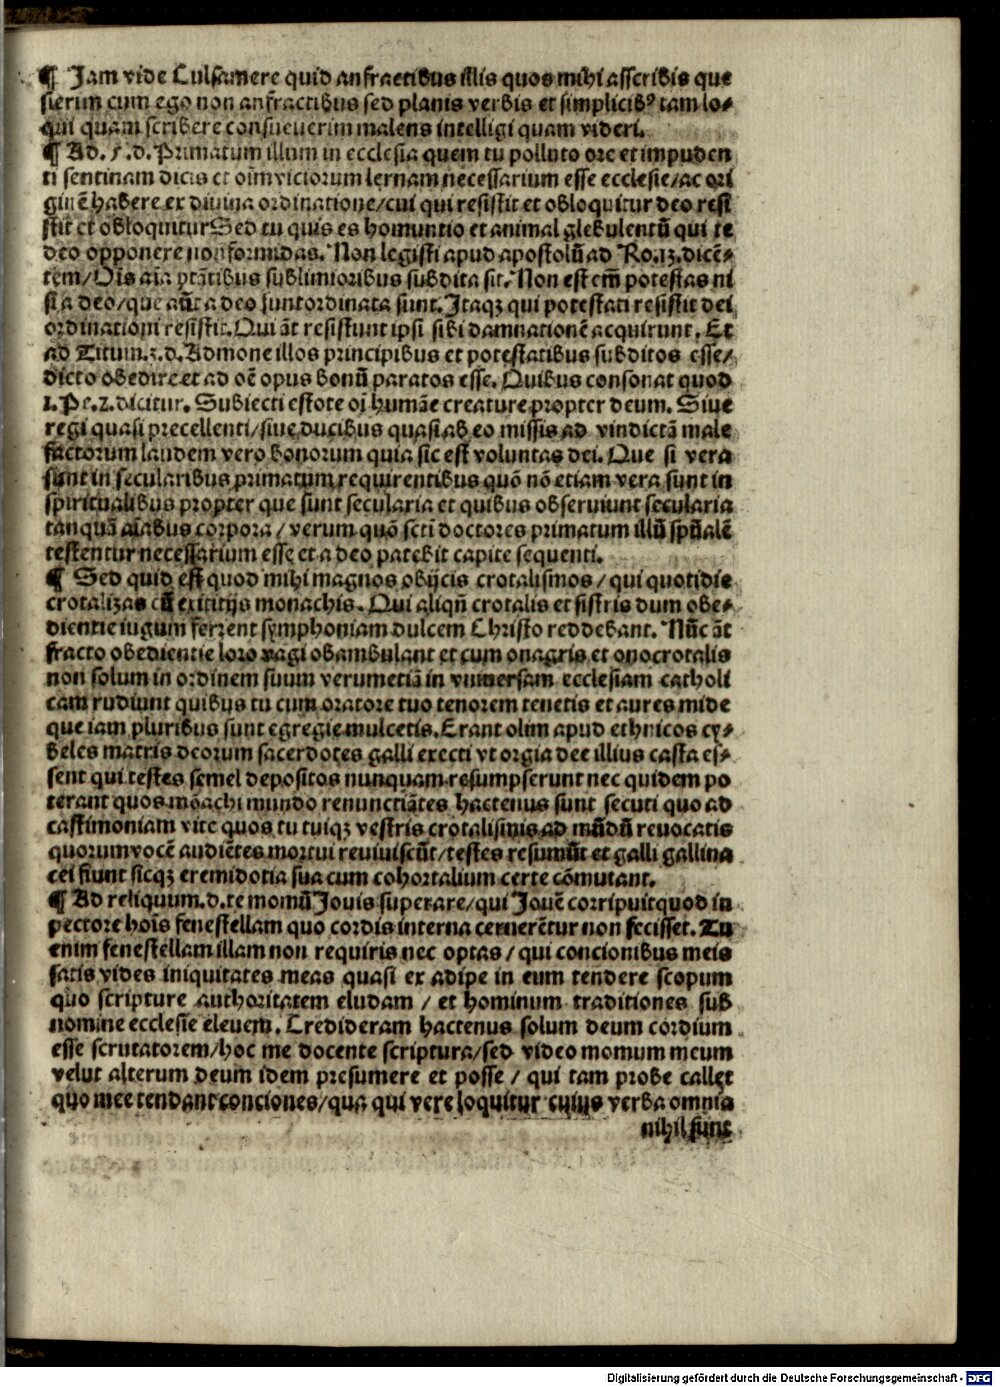 ¶ Jam vide Culsamere quid anfractibus illis quos mihi asscribis que
sierim cum ego non anfractibus sed planis verbis et simplicibꝰ tam lo⸗
qui quam scribere consueuerim malens intelligi quam videri.
¶ Ad .5.d. Primatum illum in ecclesia quem tu polluto ore et impuden
ti sentinam dicis et oīm viciorum lernam necessarium esse ecclesie/ac ori
ginē habere ex diuina ordinatione/cui qui resistit et obloquitur deo resi
stit et obloquitur Sed tu quis es homuntio et animal glebulentū qui te
deo opponere non formidas. Non legisti apud apostolū ad Ro.13.dicē⸗
tem/Oīs aīa ptātibus sublimioribus subdita sit. Non est em̄ potestas ni
si a deo/que aūt a deo sunt ordinata sunt. Itaqꝫ qui potestati resistit dei
ordinationi resistit. Qui āt resistunt ipsi sibi damnationē acquirunt. Et
ad Titum.3.d. Admone illos principibus et potestatibus subditos esse/
dicto obedire et ad oē opus bonū paratos esse. Quibus consonat quod
1.Pe.2.dicitur. Subiecti estote oī humāe creature propter deum. Siue
regi quasi precellenti/siue ducibus quasi ab eo missis ad vindictā male
factorum laudem vero bonorum quia sic est voluntas dei. Que si vera
sunt in secularibus primatum requirentibus quō nō etiam vera sunt in
spiritualibus propter que sunt secularia et quibus obseruiunt secularia
tanquā aīabus corpora/ verum quō scti doctores primatum illū spūalē
testentur necessarium esse et a deo patebit capite sequenti.
¶ Sed quid est quod mihi magnos obijcis crotalismos/ qui quotidie
crotalizas cū exititijs monachis. Qui aliqn̄ crotalis et sistris dum obe⸗
dientie iugum ferrent symphoniam dulcem Christo reddebant. Nūc āt
fracto obedientie loro vagi obambulant et cum onagris et onocrotalis
non solum in ordinem suum verumetiā in vniuersam ecclesiam catholi
cam rudiunt quibus tu cum oratore tuo tenorem tenetis et aures mide
que iam pluribus sunt egregie mulcetis. Erant olim apud ethnicos cy⸗
beles matris deorum sacerdotes galli execti vt orgia dee illius casta es⸗
sent qui testes semel depositos nunquam resumpserunt nec quidem po
terant quos mōachi mundo renunctiātes hactenus sunt secuti quo ad
castimoniam vite quos tu tuiqꝫ vestris crotalismis ad mūdū reuocatis
quorum vocē audiētes mortui reuiuiscūt/testes resumūt et galli gallina
cei fiunt sicqꝫ eremidotia sua cum cohortalium certe cōmutant.
¶ Ad reliquum.d.te momū Jouis superare/qui Jouē corripuit quod in
pectore hoīs fenestellam quo cordis interna cernerētur non fecisset. Tu
enim fenestellam illam non requiris nec optas / qui concionibus meis
satis vides iniquitates meas quasi ex adipe in eum tendere scopum
quo scripture authoritatem eludam / et hominum traditiones sub
nomine ecclesie eleuem. Credideram hactenus solum deum cordium
esse scrutatorem/hoc me docente scriptura/sed video momum meum
velut alterum deum idem presumere et posse / qui tam probe callet
quo mee tendant conciones/qua qui vere loquitur cuius verba omnia
nihil sunt
Digitalisierung gefördert durch die Deutsche Forschungsgemeinschaft - DFG